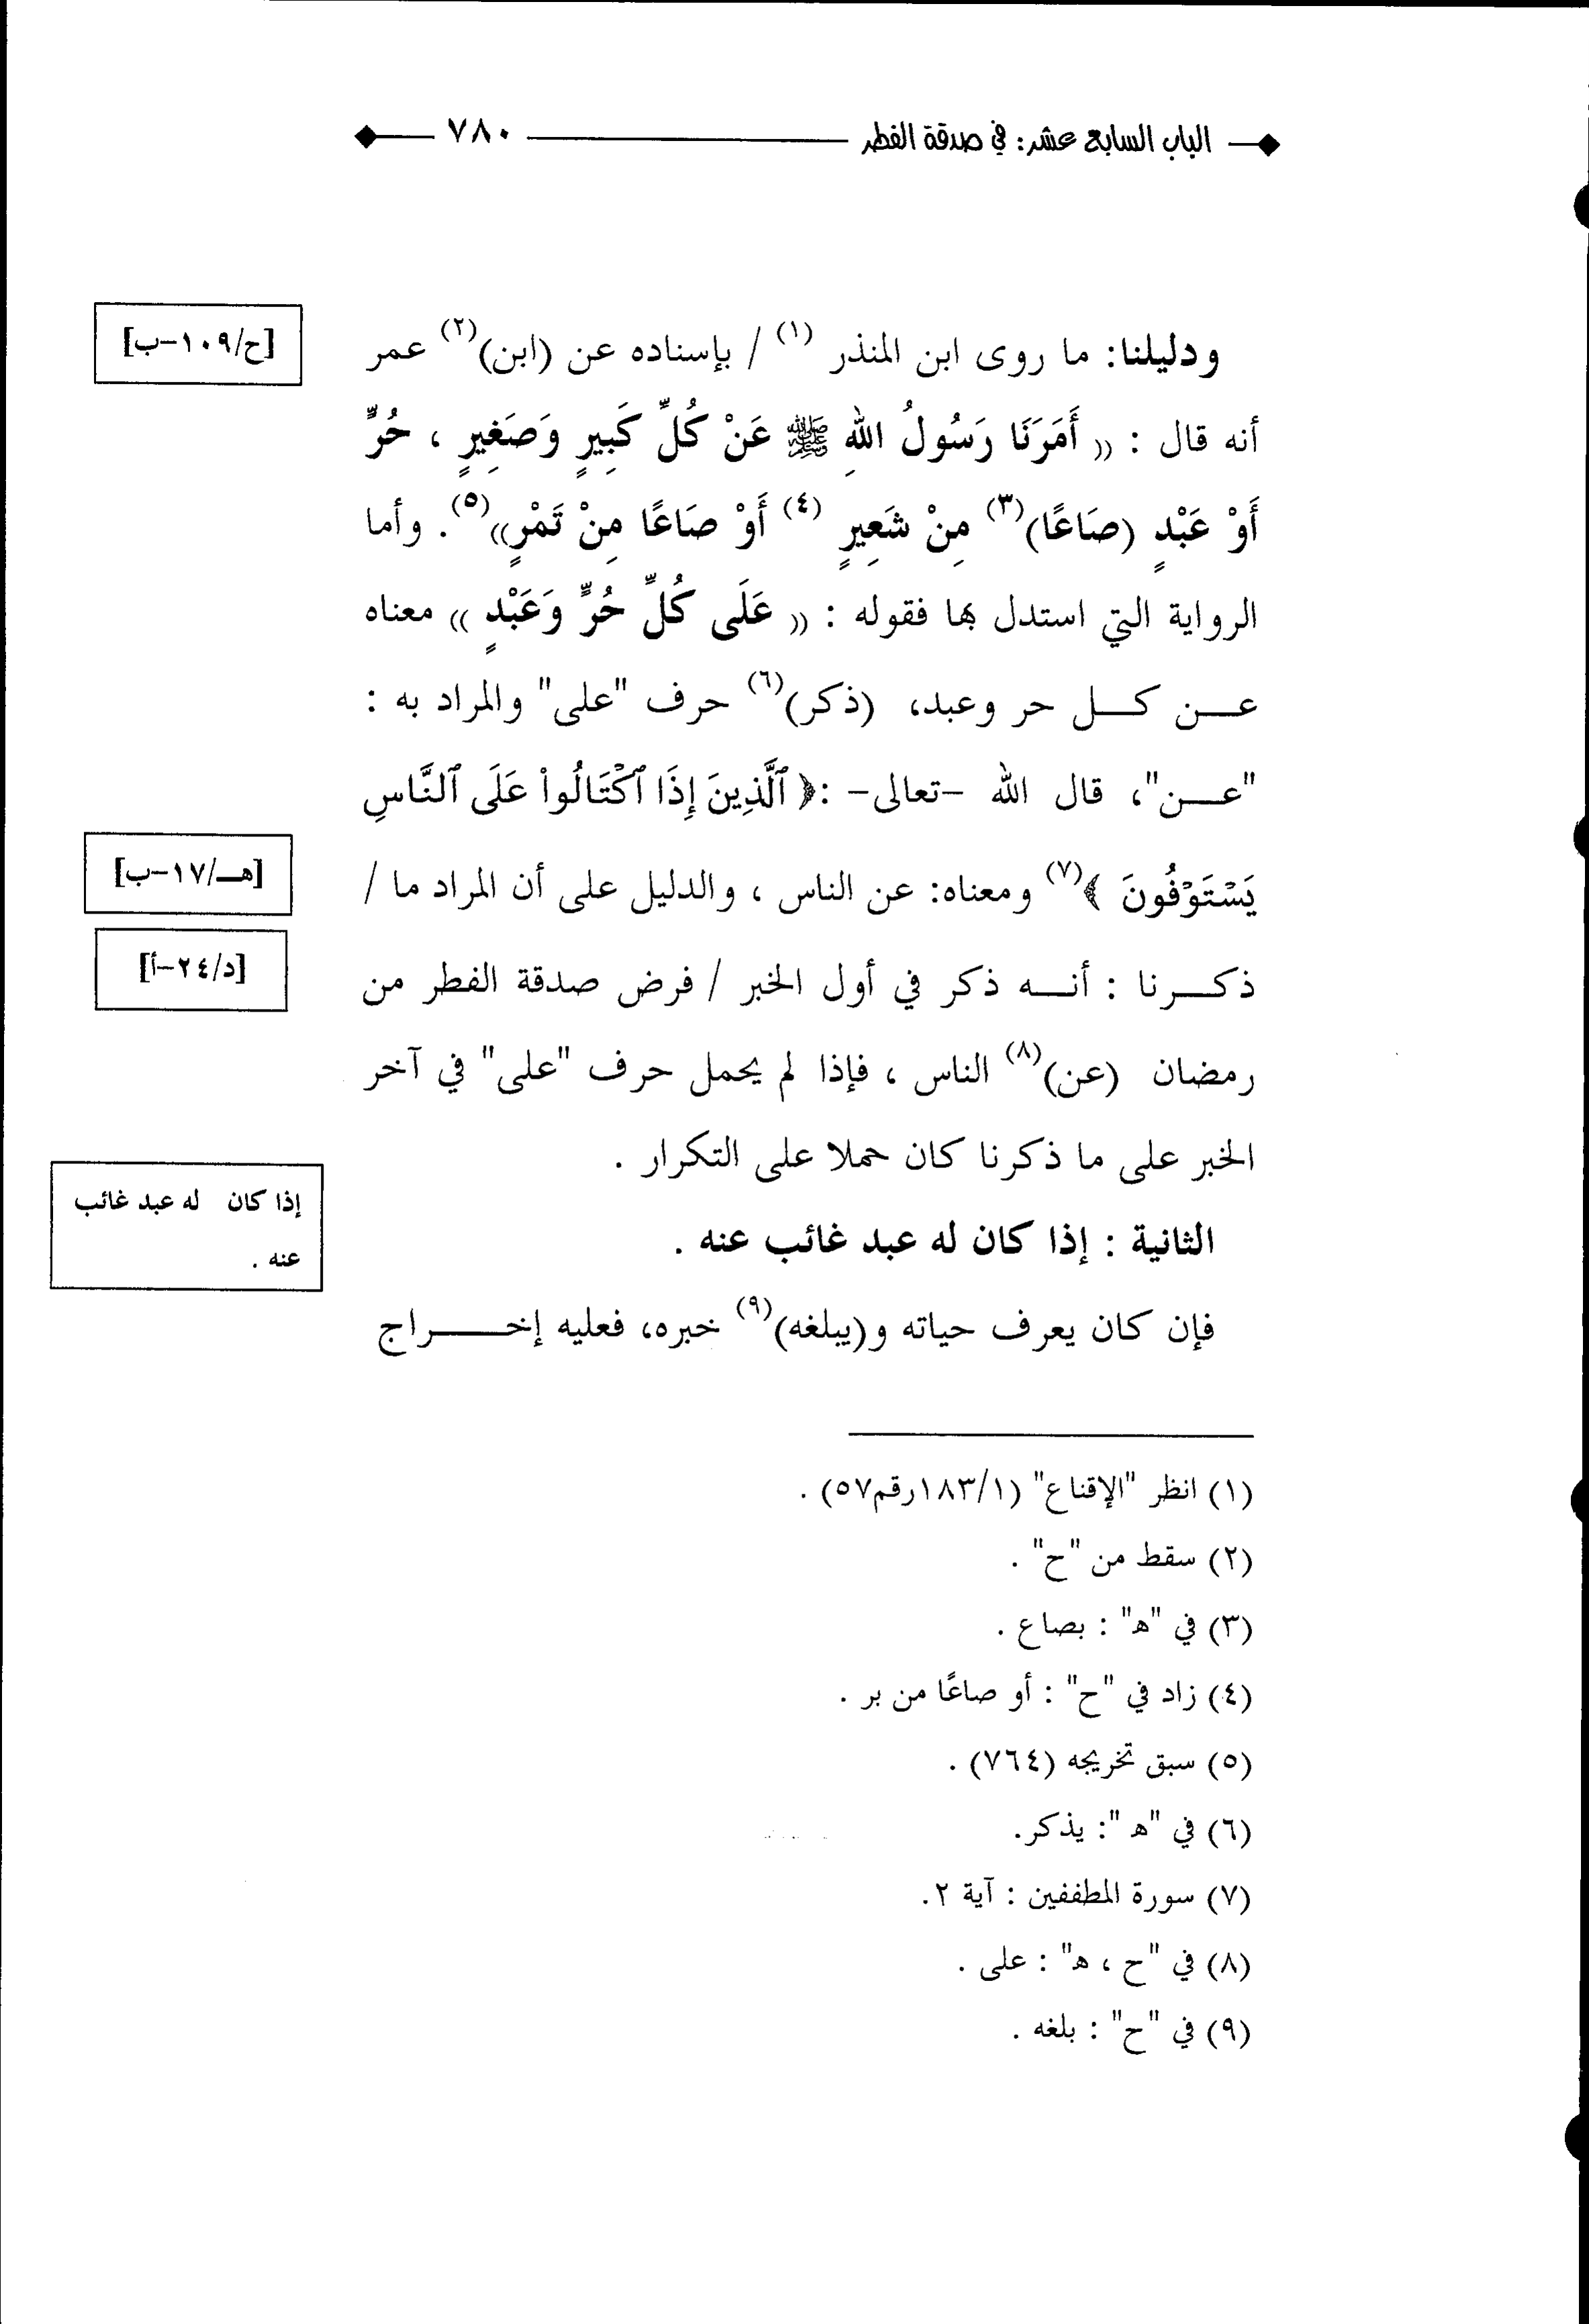 الباب السابع عشر: في صدقة الفطر ٧٨٠
ودليلنا: ما روى ابن المنذر (١) / بإسناده عن (ابن)(٢) عمر
[ح/١٠٩-ب]
أنه قال : (( أَمَرَنَا رَسُولُ اللهِ ﷺ عَنْ كُلِّ كَبِيرٍ وَصَغِيرٍ ، حُرٍّ
أَوْ عَبْدٍ (صَاعًا)(٣) مِنْ شَعِيرٍ (٤) أَوْ صَاعًا مِنْ تَمْرٍ))(٥). وأما
الرواية التي استدل بها فقوله : (( عَلَى كُلِّ حُرٍّ وَعَبْدٍ )) معناه
عـــن كـــل حر وعبد، (ذكر)(٦) حرف "على" والمراد به :
"عـــن"، قال الله -تعالى- :﴿ ٱلَّذِينَ إِذَا ٱكْتَالُوا۟ عَلَى ٱلنَّاسِ
يَسْتَوْفُونَ ﴾(٧) ومعناه: عن الناس ، والدليل على أن المراد ما /
[هـ/١٧-ب]
ذكـــرنا : أنـــه ذكر في أول الخبر / فرض صدقة الفطر من
[د/٢٤-أ]
رمضان (عن)(٨) الناس ، فإذا لم يحمل حرف "على" في آخر
الخبر على ما ذكرنا كان حملا على التكرار .
الثانية : إذا كان له عبد غائب عنه .
إذا كان له عبد غائب
عنه .
فإن كان يعرف حياته و(يبلغه)(٩) خبره، فعليه إخـــــراج
(١) انظر "الإقناع" (١/١٨٣رقم٥٧) .
(٢) سقط من "ح" .
(٣) في "ه" : بصاع .
(٤) زاد في "ح" : أو صاعًا من بر .
(٥) سبق تخريجه (٧٦٤) .
(٦) في "ه ": يذكر.
(٧) سورة المطففين : آية ٢.
(٨) في "ح ، ه" : على .
(٩) في "ح" : بلغه .